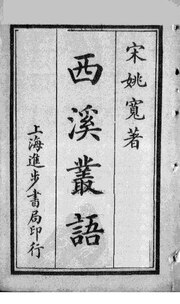 宋姚寬著
西溪叢語
上海進步書局印行